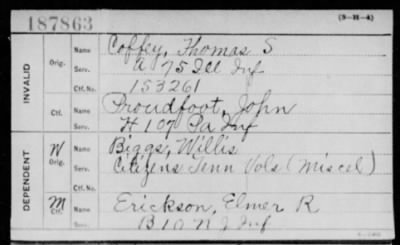 187863
(3-H-4)
INVALID
Orig.
Name Coffey, Thomas S
Serv. A 75 Ill Inf
Ctf. No. 153261
Ctf.
Name Proudfoot, John
Serv. H 107 Pa Inf
DEPENDENT
W Orig.
Name Biggs, Willis
Serv. Citizens Tenn Vols (Miscel)
Ctf. No.
M Ctf.
Name Erickson, Elmer R
Serv. B 10 N J Inf